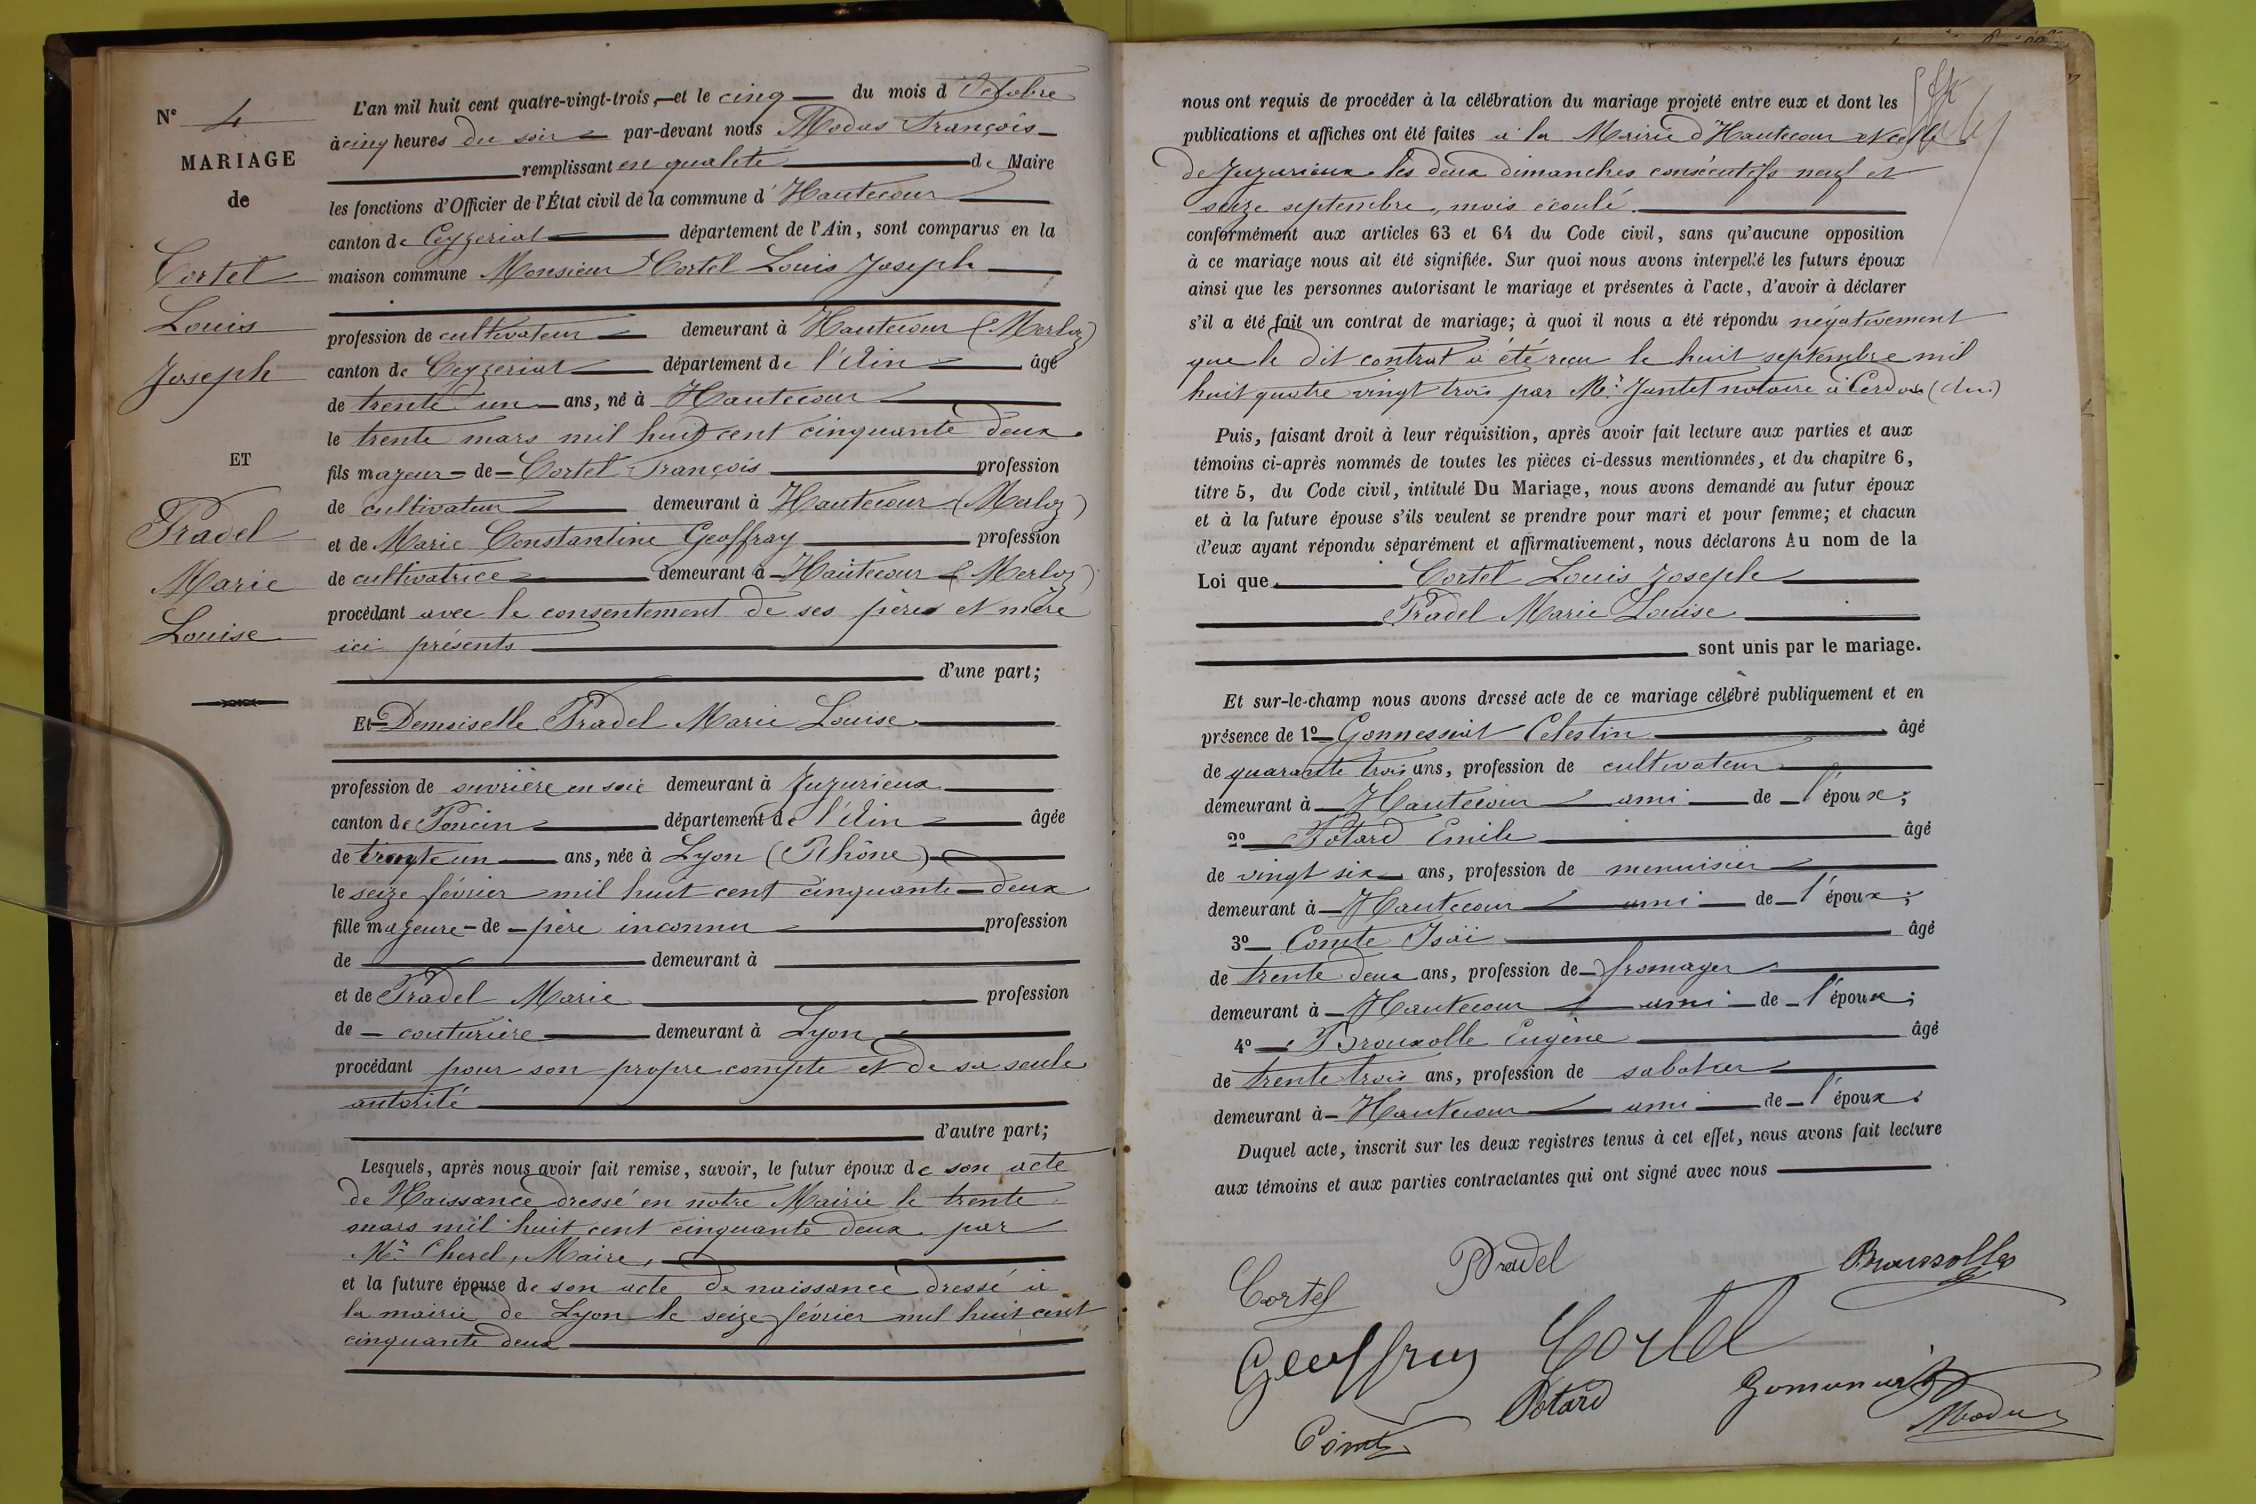 N° 4
MARIAGE
de
Cortel
Louis
Joseph
ET
Pradel
Marie
Louise
L'an mil huit cent quatre-vingt-trois, et le cinq du mois d'Octobre
à cinq heures du soir par-devant nous Modas François
remplissant en qualité de Maire
les fonctions d'Officier de l'État civil de la commune d'Hautecour
canton de Ceyzeriat département de l'Ain, sont comparus en la
maison commune Monsieur Cortel Louis Joseph
profession de cultivateur demeurant à Hautecour (Merloz)
canton de Ceyzeriat département de l'Ain âgé
de trente un ans, né à Hautecour
le trente mars mil huit cent cinquante deux
fils majeur de Cortel François profession
de cultivateur demeurant à Hautecour (Merloz)
et de Marie Constantine Geoffray profession
de cultivatrice demeurant à Hautecour (Merloz)
procédant avec le consentement de ses pères et mère
ici présents
d'une part;
Et Demoiselle Pradel Marie Louise
profession de ouvrière en soie demeurant à Jujurieux
canton de Poncin département de l'Ain âgée
de trente un ans, née à Lyon (Rhône)
le seize février mil huit cent cinquante deux
fille majeure de père inconnu profession
de demeurant à
et de Pradel Marie profession
de couturière demeurant à Lyon
procédant pour son propre compte et de sa seule
autorité
d'autre part;
Lesquels, après nous avoir fait remise, savoir, le futur époux de son acte
de Naissance dressé en notre Mairie le trente
mars mil huit cent cinquante deux par
Mr Cherel, Maire,
et la future épouse de son acte de naissance dressé à
la mairie de Lyon le seize février mil huit cent
cinquante deux
nous ont requis de procéder à la célébration du mariage projeté entre eux et dont les
publications et affiches ont été faites à la Mairie d'Hautecour et celle
de Jujurieux les deux dimanches consécutifs neuf et
seize septembre, mois écoulé.
conformément aux articles 63 et 64 du Code civil, sans qu'aucune opposition
à ce mariage nous ait été signifiée. Sur quoi nous avons interpellé les futurs époux
ainsi que les personnes autorisant le mariage et présentes à l'acte, d'avoir à déclarer
s'il a été fait un contrat de mariage; à quoi il nous a été répondu négativement
que le dit contrat a été reçu le huit septembre mil
huit quatre vingt trois par Mr Jantet notaire à Cerdon (Ain)
Puis, faisant droit à leur réquisition, après avoir fait lecture aux parties et aux
témoins ci-après nommés de toutes les pièces ci-dessus mentionnées, et du chapitre 6,
titre 5, du Code civil, intitulé Du Mariage, nous avons demandé au futur époux
et à la future épouse s'ils veulent se prendre pour mari et pour femme; et chacun
d'eux ayant répondu séparément et affirmativement, nous déclarons Au nom de la
Loi que Cortel Louis Joseph
Pradel Marie Louise
sont unis par le mariage.
Et sur-le-champ nous avons dressé acte de ce mariage célébré publiquement et en
présence de 1° Gonnessiat Celestin âgé
de quarante trois ans, profession de cultivateur
demeurant à Hautecour ami de l'époux;
2° Potard Emile âgé
de vingt six ans, profession de menuisier
demeurant à Hautecour ami de l'époux;
3° Comte Isaï âgé
de trente deux ans, profession de fromager
demeurant à Hautecour ami de l'époux;
4° Brouxolle Eugène âgé
de trente trois ans, profession de sabotier
demeurant à Hautecour ami de l'époux.
Duquel acte, inscrit sur les deux registres tenus à cet effet, nous avons fait lecture
aux témoins et aux parties contractantes qui ont signé avec nous
Cortel Pradel Broussolles
Geoffray Cortel
Potard
Comte Modas